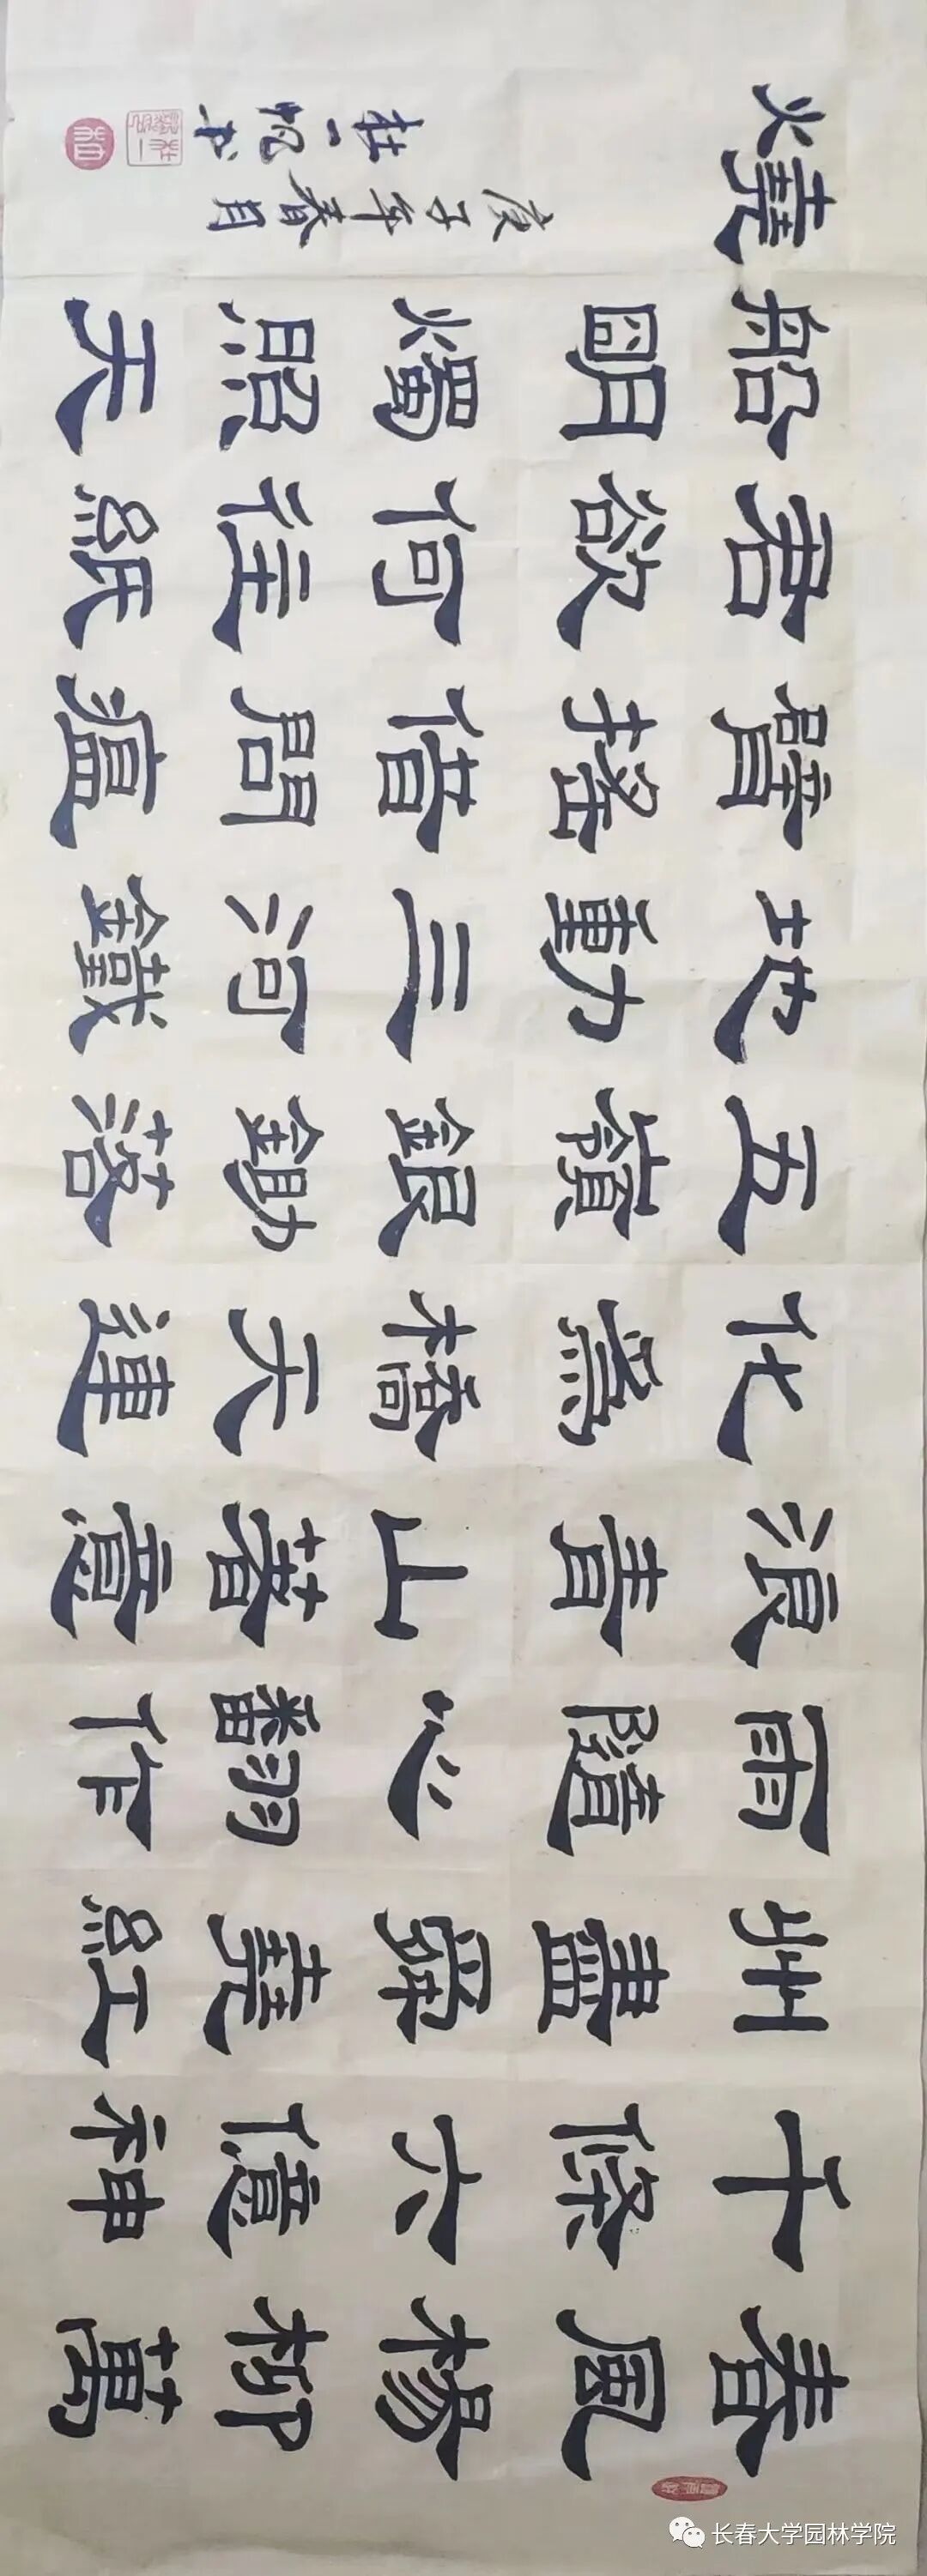 春風楊柳萬
千條六億神
州盡舜堯紅
雨隨心翻作
浪青山著意
化為橋天連
五嶺銀鋤落
地動三河鐵
臂搖借問瘟
君欲何往紙
船明燭照天
燒
庚子年春月
杜一帆书
长春大学园林学院